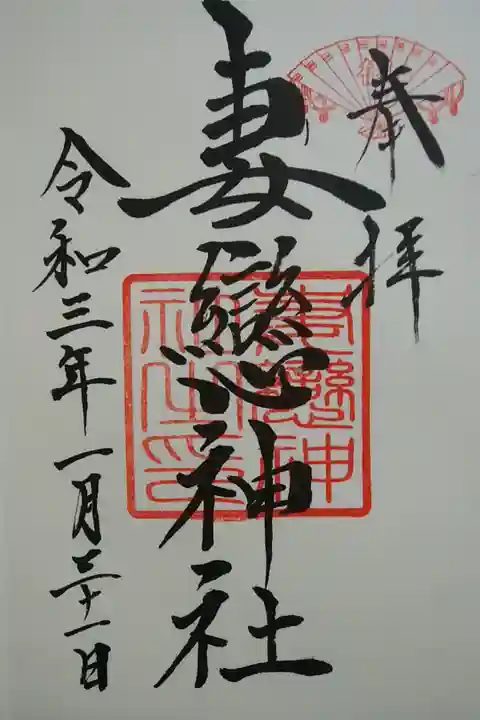 奉拝
妻戀神社
妻戀神社印
令和三年一月三十一日